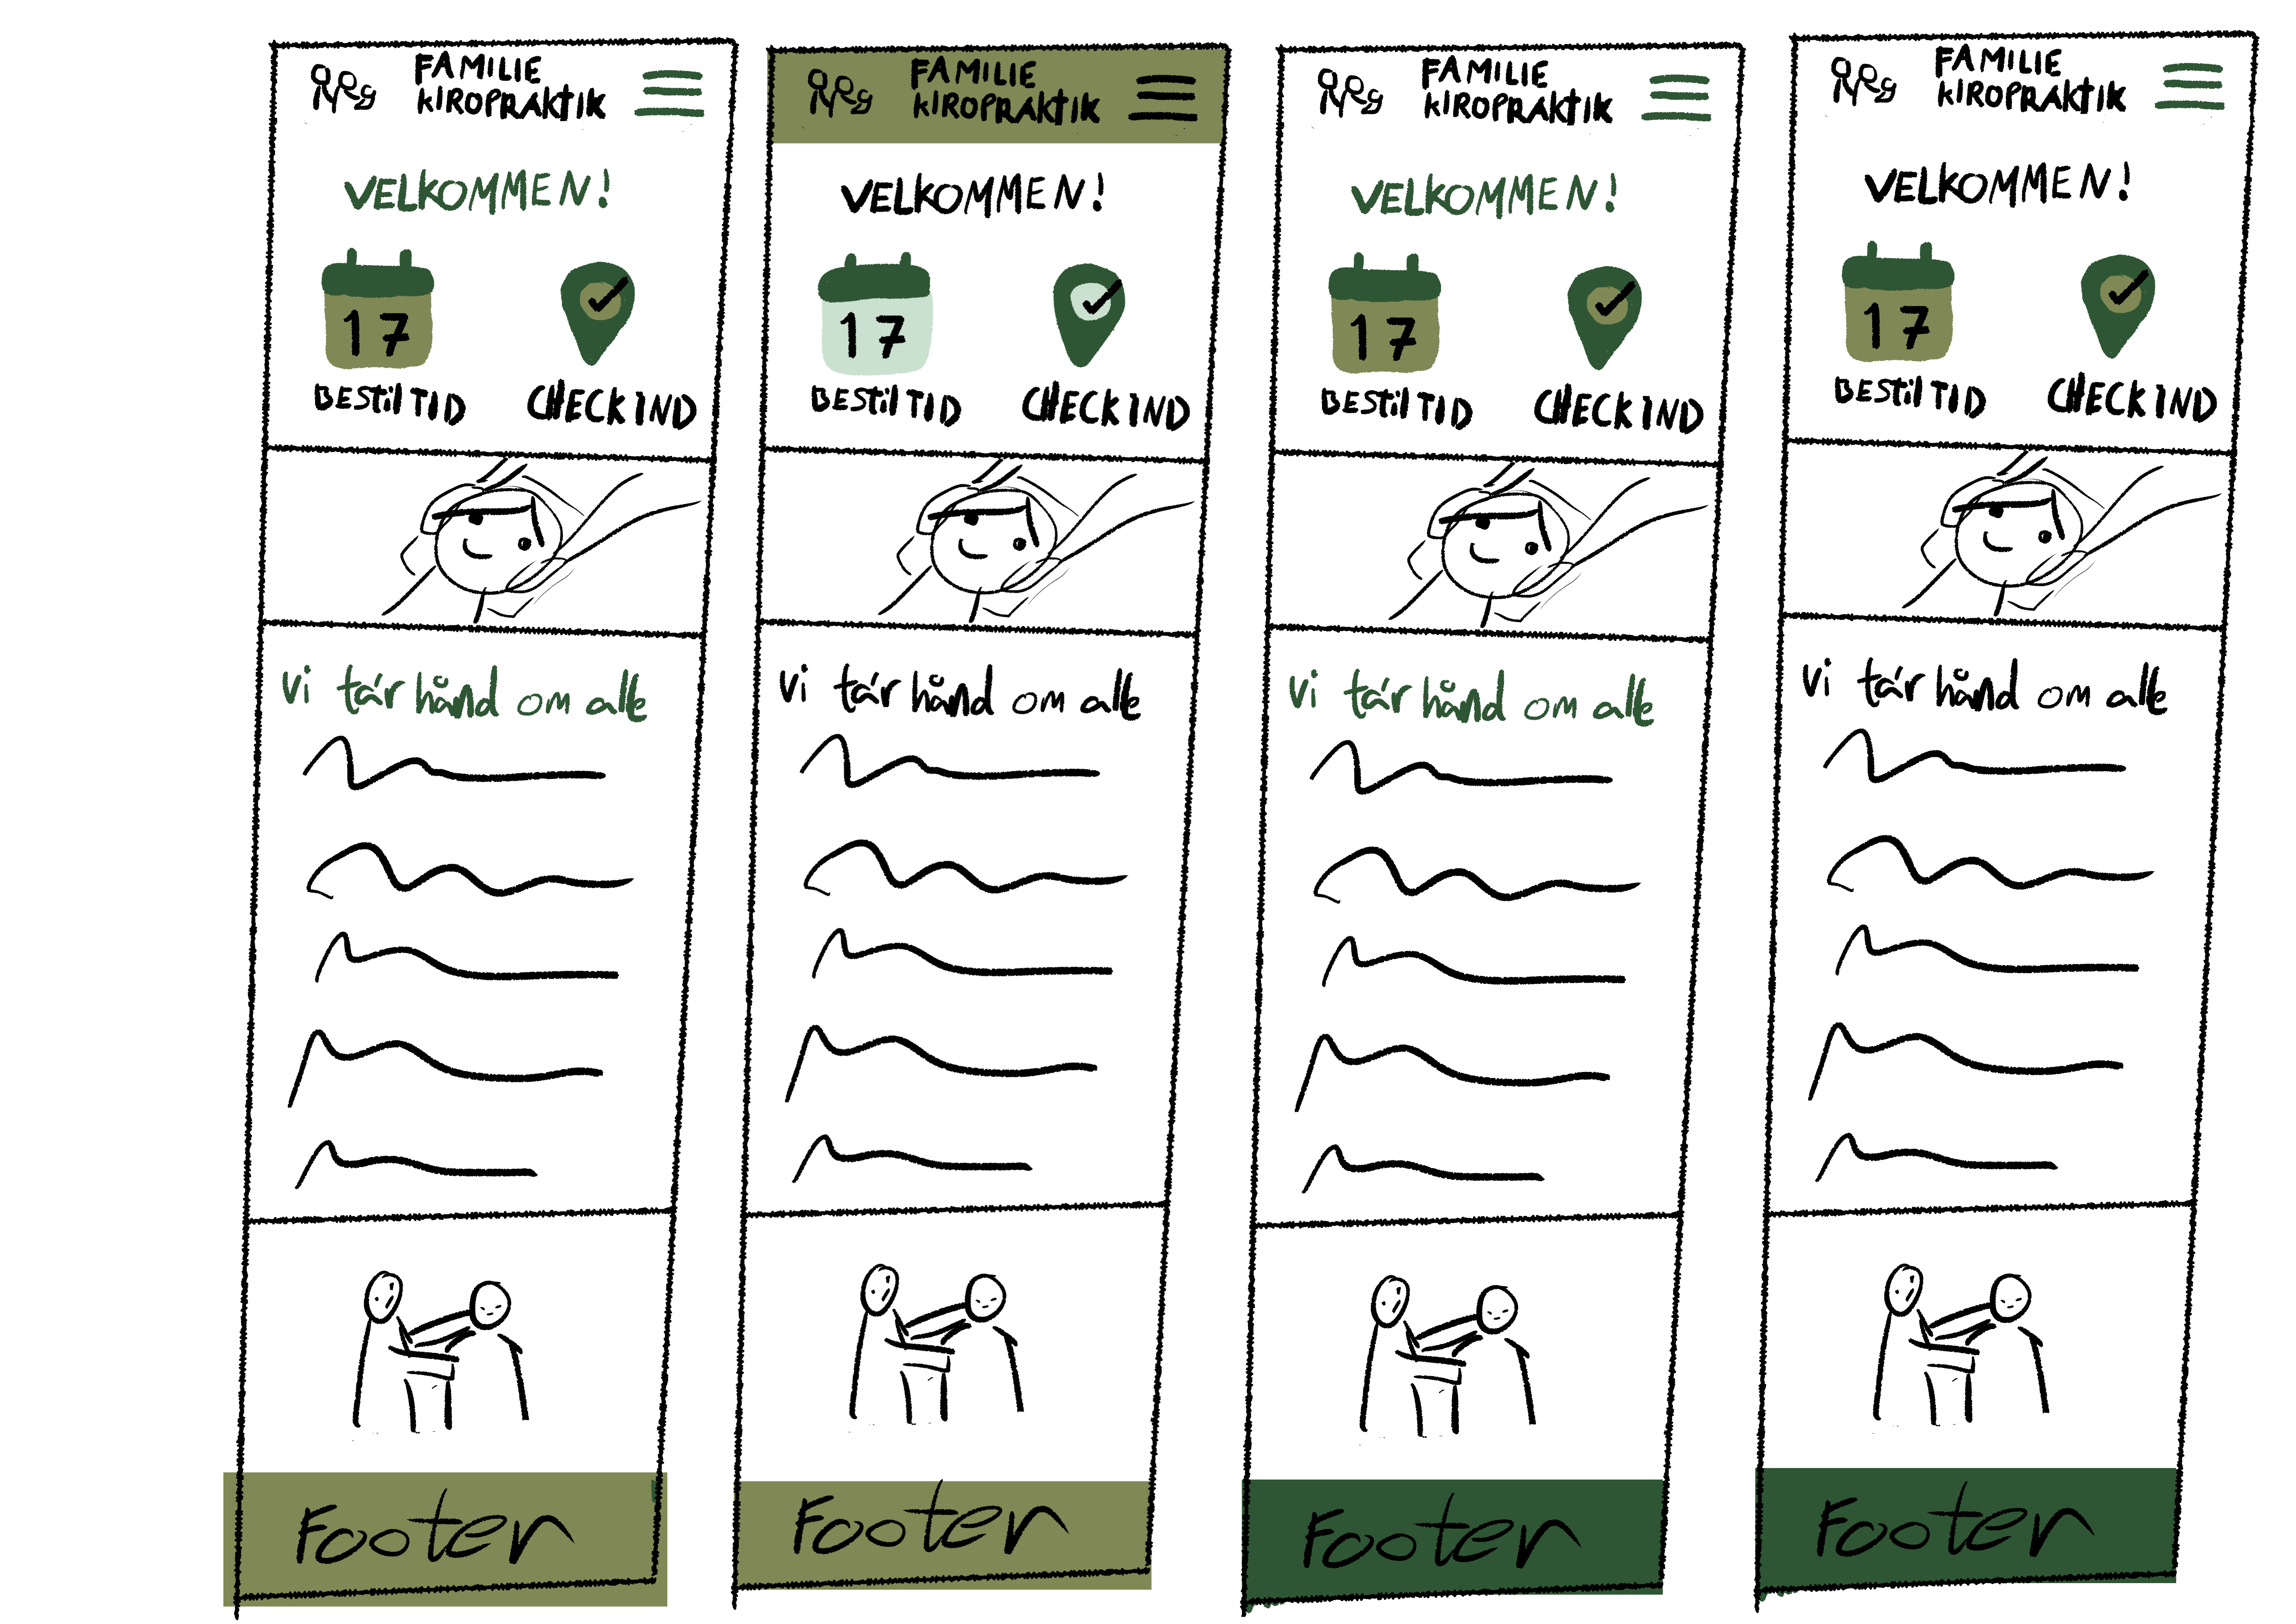 FAMILIE
KIROPRAKTIK
VELKOMMEN!
17
BESTIL TID
CHECK IND
Vi tar hånd om alle
Footer
FAMILIE
KIROPRAKTIK
VELKOMMEN!
17
BESTIL TID
CHECK IND
Vi tar hånd om alle
Footer
FAMILIE
KIROPRAKTIK
VELKOMMEN!
17
BESTIL TID
CHECK IND
Vi tar hånd om alle
Footer
FAMILIE
KIROPRAKTIK
VELKOMMEN!
17
BESTIL TID
CHECK IND
Vi tar hånd om alle
Footer